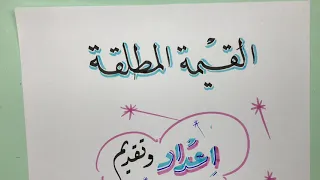 القيْمة المطلقة
إعداد وتقديم